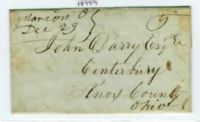 Marion O
Dec 29
John Barry Esqre
Centerbury
Knox County
Ohio